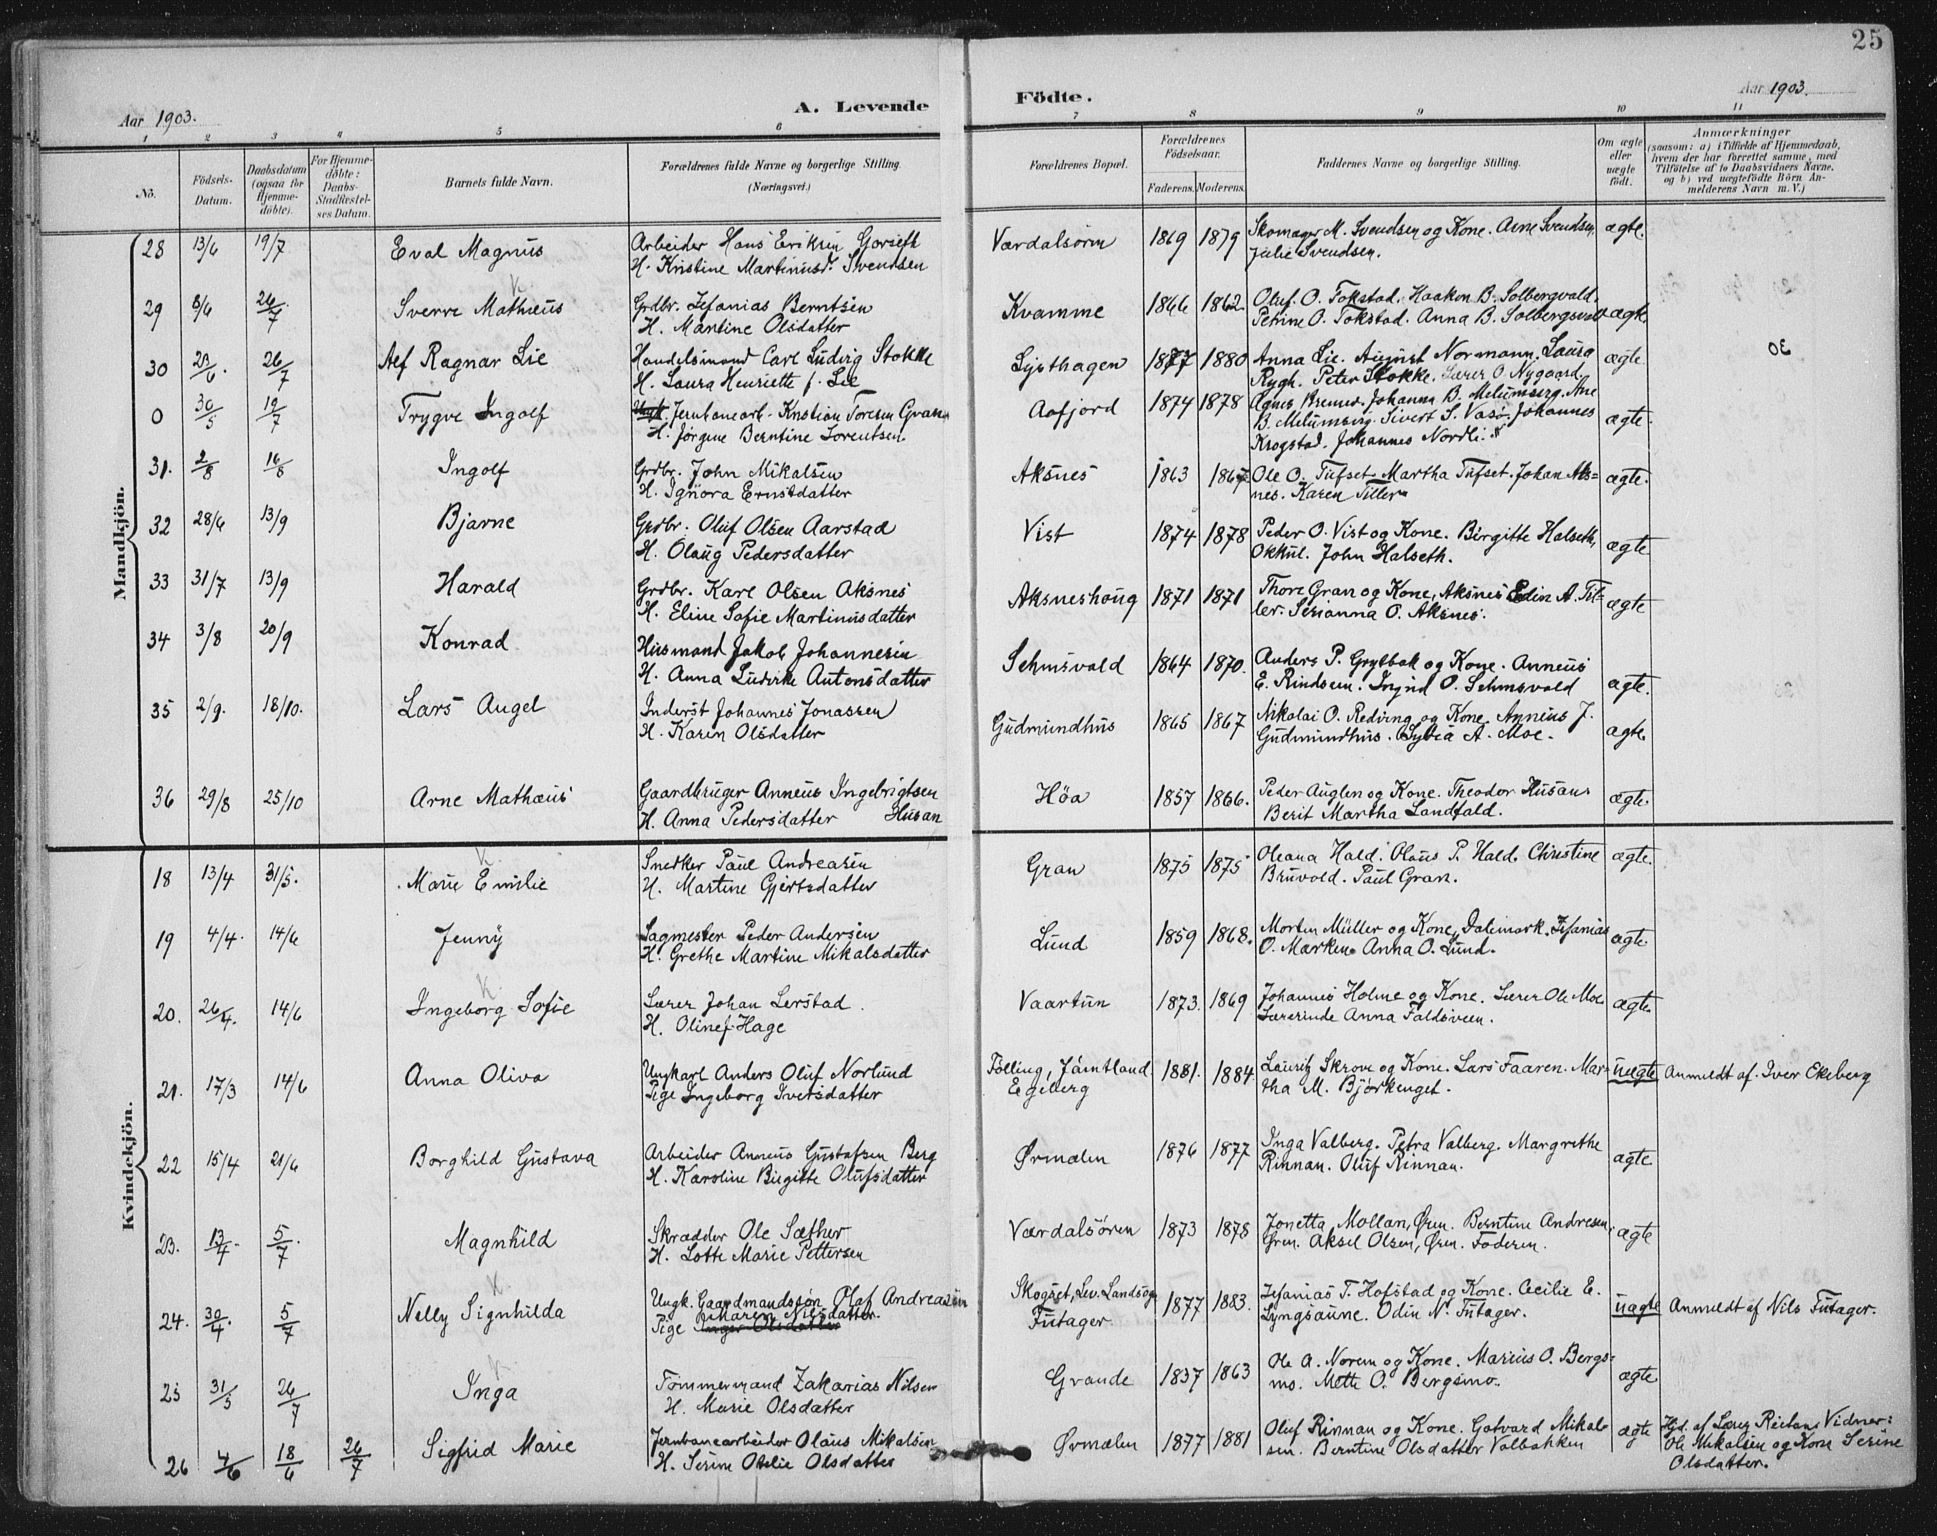 25
Aar 1903. A. Levende Födte. Aar 1903.
1 2 3 4 5 6 7 8 9 10 11
No. Födsels-Datum. Daabsdatum (ogsaa for Hjemme-döbte). For Hjemme-döbte: Daabs-Stadfæstel-ses Datum. Barnets fulde Navn. Forældrenes fulde Navne og borgerlige Stilling. (Næringsvei.) Forældrenes Bopæl. Forældrenes Födselsaar. Faderens. Moderens. Faddernes Navne og borgerlige Stilling. Om ægte eller uægte födt. Anmærkninger (saasom: a) i Tilfælde af Hjemmedaab, hvem der har forrettet samme, med Tilföielse af to Daabsvidners Navne, og b) ved uægtefödte Börn An-melderens Navn m. V.)
Mandkjön.
28 13/6 19/7 Eval Magnus Arbeider Hans Eriksen Gorseth Værdalsøren 1869 1879 Skomager M. Svendsen og Kone. Arne Svendsen, ægte.
H. Kristine Martinusd. Svendsen Julie Svendsen.
29 8/6 26/7 Sverre Mathæus Grdbr. Zefanias Berntsen Kvamme 1866 1862. Oluf O. Tokstad. Haakon B. Solbergvald.
H. Martine Olsdatter Petrine O. Tokstad. Anna B. Solbergsvald ægte
30 23/6. 26/7 Alf Ragnar Lie Handelsmand Carl Ludvig Stokke Lysthagen 1877 1880 Anna Lie. August Normann. Laura ægte 30
H. Laura Henriette f. Lie Rygh. Peter Stokke. Lærer O. Nygaard
0 30/5 19/7 Trygve Ingolf Ungk. Jernbanearb. Kristian Toresen Gran Aafjord 1874 1878 Agnes Bremer. Johanna B. Melumsberg. Ane
H. Jørgine Berntine Lorentsen B. Melumsberg. Sivert S. Vasø. Johannes ægte.
Krogstad. Johannes Nordli.
31. 2/8 16/8 Ingolf Grdbr. John Mikalsen Aksnes 1863 1867 Ole O. Tufset. Martha Tufset. Johan Aks-
H. Ignora Ernstdatter nes. Karen Tiller ægte.
32 28/6 13/9 Bjarne Grdbr. Oluf Olsen Aarstad Vist 1874 1878 Peder O. Vist og Kone. Birgitte Halseth,
H. Olaug Pedersdatter Okkul. John Halseth. ægte
33 31/7 13/9 Harald Grdbr. Karl Olsen Aksnes Aksneshaug 1871 1871 Thore Gran og Kone, Aksnes Edin A. Til-
H. Eline Sofie Martinusdatter ler. Serianna O. Aksnes. ægte
34 3/8 20/9 Konrad Husmand Jakob Johannesen Sehmsvald 1864 1870. Anders P. Grytbak og Kone. Anneus
H. Anna Ludvike Antonsdatter E. Rindsem. Ingrid O. Sehmsvald ægte.
35 2/9. 18/10. Lars Angel Inderst Johannes Jonassen Gudmundhus 1865 1867 Nikolai O. Redving og Kone. Anneus J.
H. Karen Olsdatter Gudmundhus. Sylvia A. Moe. ægte
36 29/8 25/10 Arne Mathæus Gaardbruger Anneus Ingebrigtsen Höa 1857 1866. Peder Auglen og Kone. Theodor Husan.
H. Anna Pedersdatter Husan Berit Martha Landfald. ægte.
Kvindekjön.
18 13/4 31/5. Marie Emilie Snedker Paul Andreasen Gran 1875 1875 Oleana Hald. Olaus P. Hald. Christine ægte.
H. Martine Gjertsdatter Bruvold. Paul Gran.
19 4/4. 14/6 Jenny Sagmester Peder Andersen Lund 1859 1868. Morten Müller og Kone, Dalemark. Zefanias
H. Grethe Martine Mikalsdatter O. Marken. Anna O. Lund. ægte.
20. 26/4. 14/6 Ingeborg Sofie Lærer Johan Lerstad Vaartun 1873. 1869 Johannes Holme og Kone. Lærer Ole Moe
H. Olinef. Hage Lærerinde Anna Faldsveen. ægte
21. 17/3 14/6 Anna Oliva Ungkarl Anders Oluf Norlund Fölling, Jämtland 1881. 1884 Lauritz Skrove og Kone. Lars Faaren. Mar- uægte Anmeldt af. Iver Ekeberg
Pige Ingeborg Iversdatter Egeberg tha M. Björkenget.
22 15/4 21/6 Borghild Gustava Arbeider Anneus Gustafsen Berg Ørmælen 1876 1877 Inga Valberg. Petra Valberg. Margrethe
H. Karoline Birgitte Olufsdatter Rinnan. Oluf Rinnan. ægte
23. 13/4. 5/7. Magnhild Skrædder Ole Sæther Værdalsören 1873 1878 Jonetta Mollan, Øren. Berntine Andresen,
H. Lotte Marie Pettersen Øren. Aksel Olsen, Øren. Faderen. ægte
24. 30/4. 5/7 Nelly Signhilda Ungk. Gaardmandssön Olaf Andreassen Skogset, Lev. Landsogn 1877 1883. Zefanias T. Hofstad og Kone. Cecilie E.
Pige Maren Nilsdatter. Futager Lyngsaune. Odin N. Futager. uægte Anmeldt af Nils Futager.
25 31/5 26/7 Inga Tömmermand Zakarias Nilsen Grande 1837 1863 Ole A. Norem og Kone. Marius O. Bergs-
H. Marie Olsdatter mo. Mette O. Bergsmo. ægte
26 4/6 18/6 26/7 Sigfrid Marie Jernbanearbeider Olaus Mikalsen Ørmælen 1877 1881 Oluf Rinnan og Kone. Gotvard Mikal- ægte Hjd. af Lærer Reitan. Vidner:
H. Serine Otelie Olsdatter sen. Berntine Olsdatter Valbakken Ole Mikalsen og Kone Serine
Olsdatter.